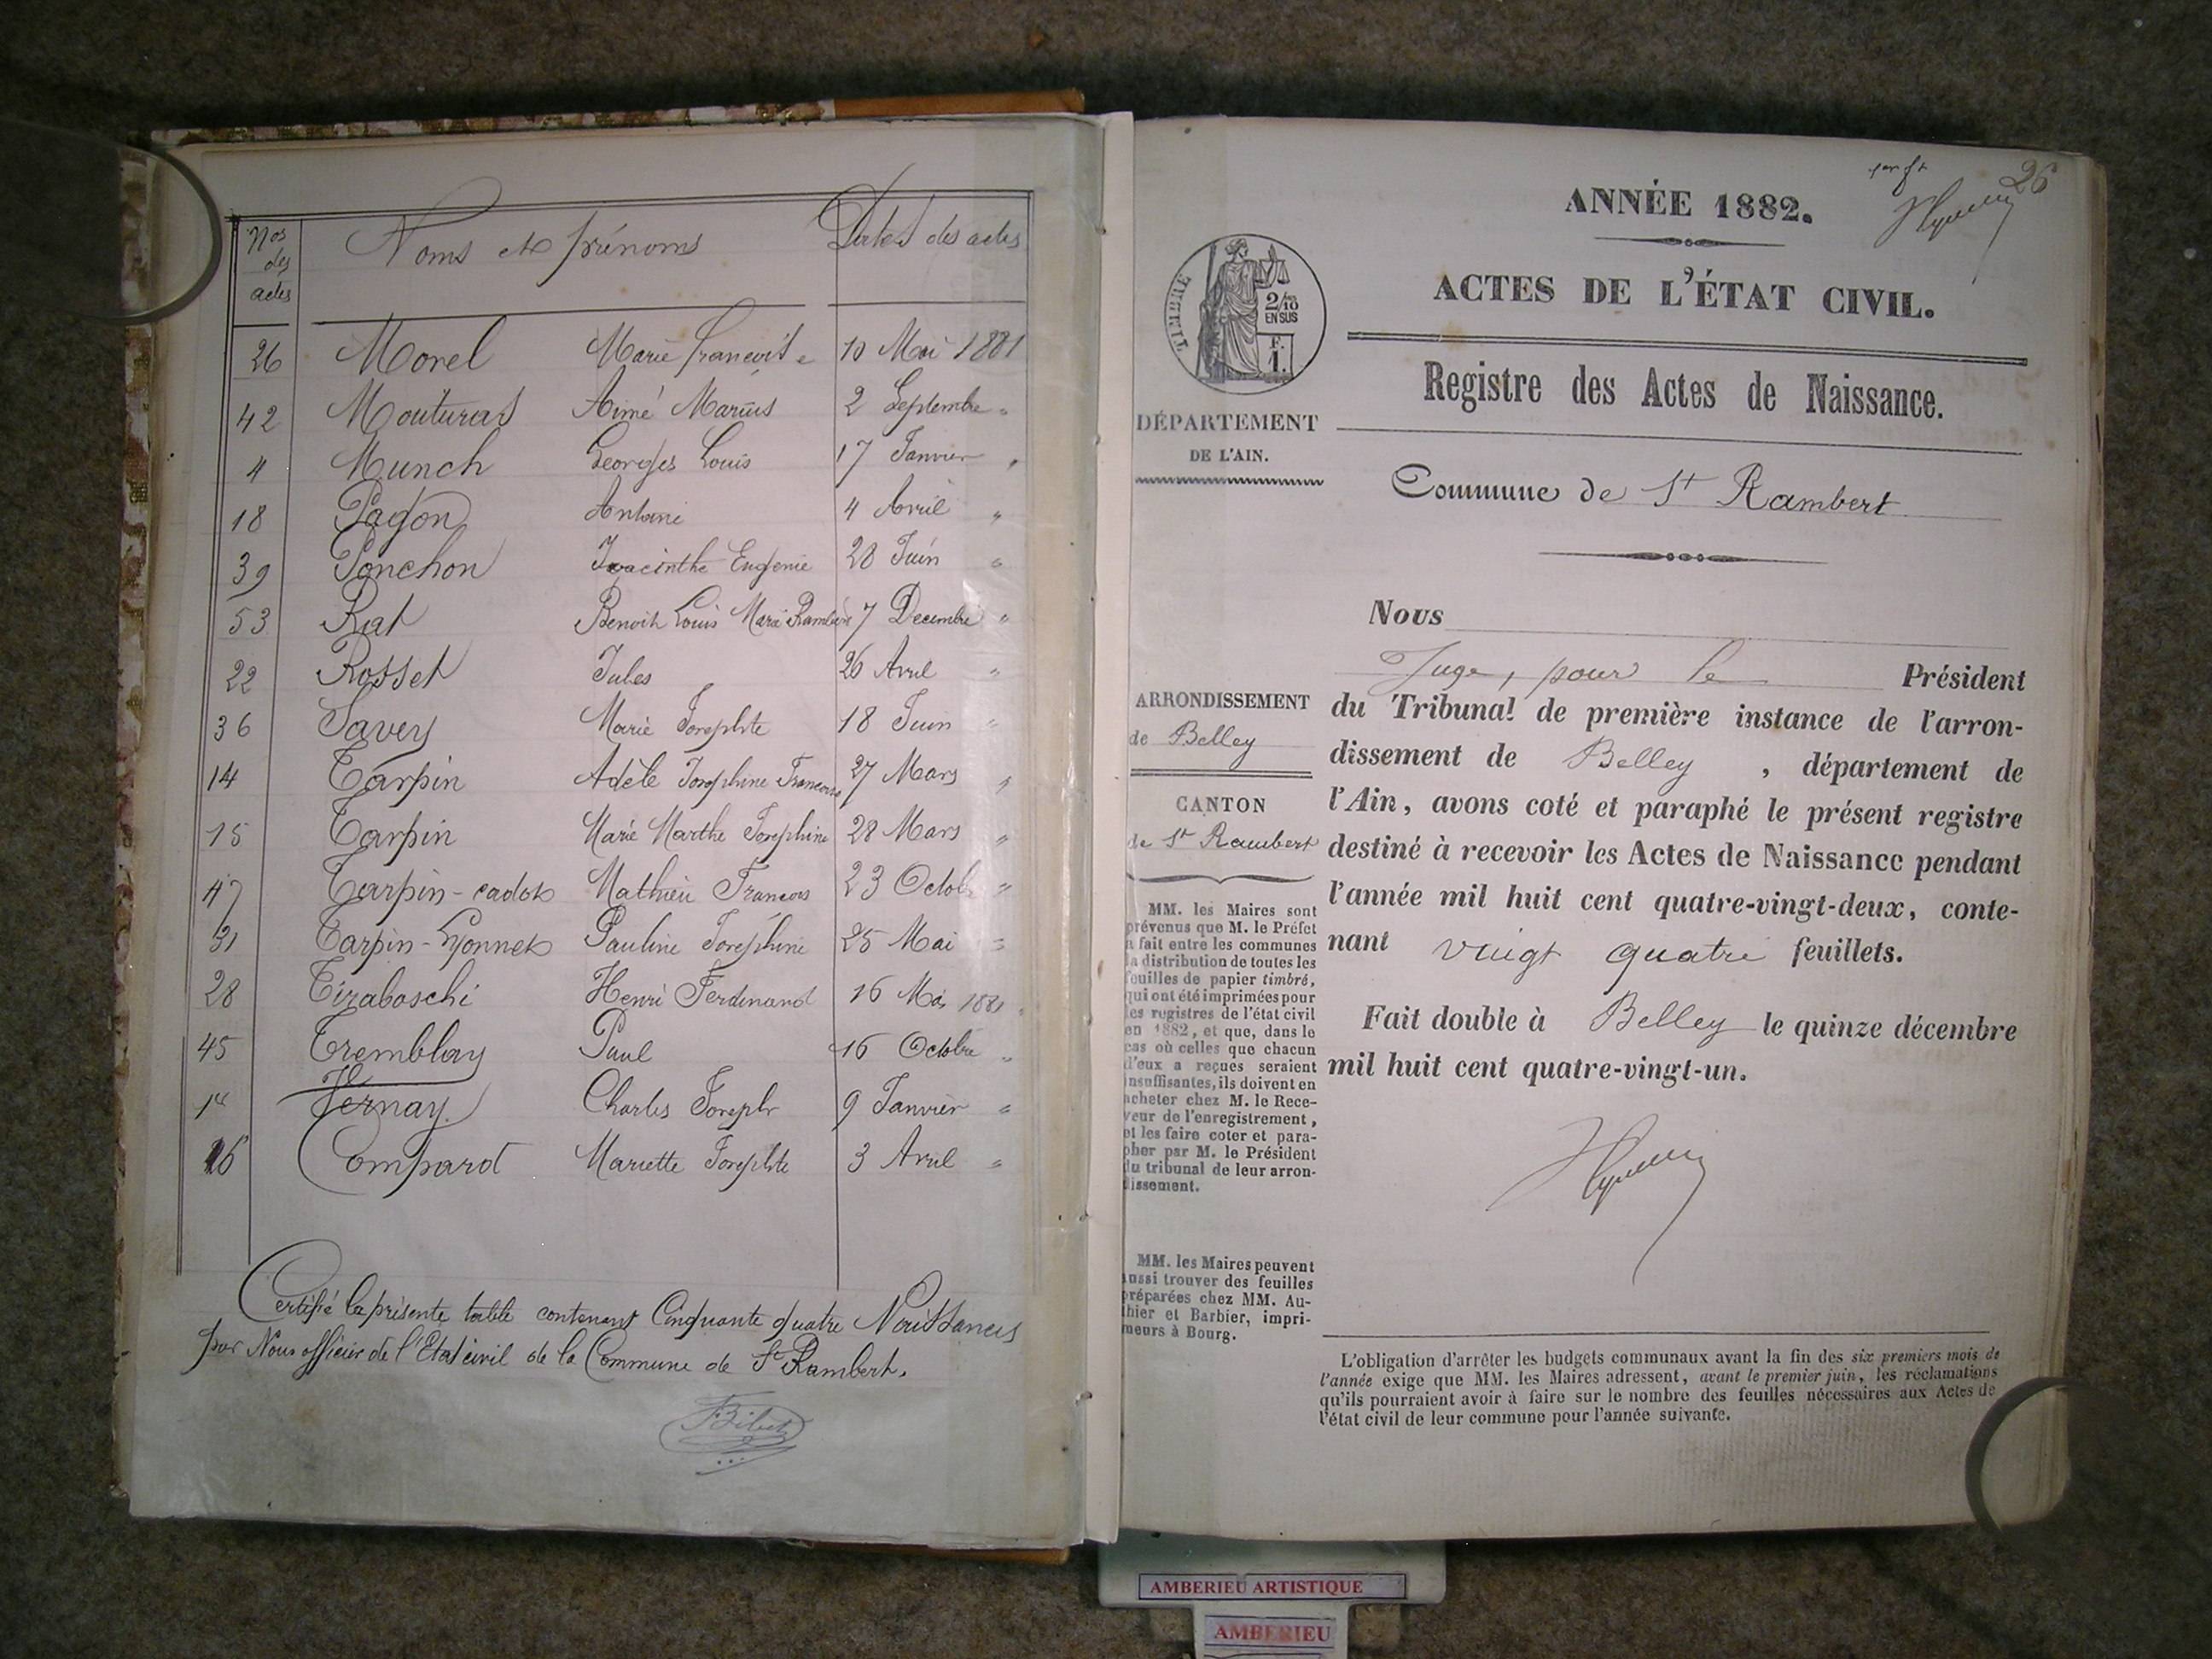 Nos des actes Noms et prénoms Dates des actes
26 Morel Marie Francoise 10 Mai 1881
42 Mouturas Aimé Marius 2 Septembre "
4 Munch Georges Louis 17 Janvier "
18 Pagon Antoine 4 Avril "
39 Ponchon Hyacinthe Eugenie 28 Juin "
53 Rat Benoit Louis Marie Rambert 7 Decembre "
22 Rosset Jules 26 Avril "
36 Savey Marie Josephte 18 Juin "
14 Tarpin Adèle Josephine Francoise 27 Mars "
15 Tarpin Marie Marthe Josephine 28 Mars "
47 Tarpin-cadot Mathieu Francois 23 Octobre "
31 Tarpin-Lyonnet Pauline Joséphine 25 Mai "
28 Tiraboschi Henri Ferdinand 16 Mai 1881
45 Tremblay Paul 16 Octobre "
1er Vernay Charles Joseph 9 Janvier "
16 Compard Mariette Josephte 3 Avril "
Certifié la présente table contenant Cinquante quatre Naissances
par Nous officier de l'Etat civil de la Commune de St Rambert.
Bibet
26
ANNÉE 1882.
ACTES DE L'ÉTAT CIVIL.
TIMBRE
2/10 EN SUS
F. 1.
Registre des Actes de Naissance.
DÉPARTEMENT
DE L'AIN.
Commune de St Rambert
Nous
Juge, pour le Président
du Tribunal de première instance de l'arron-
dissement de Belley, département de
l'Ain, avons coté et paraphé le présent registre
destiné à recevoir les Actes de Naissance pendant
l'année mil huit cent quatre-vingt-deux, conte-
nant vingt quatre feuillets.
Fait double à Belley le quinze décembre
mil huit cent quatre-vingt-un.
ARRONDISSEMENT
de Belley
CANTON
de St Rambert
MM. les Maires sont
prévenus que M. le Préfet
a fait entre les communes
la distribution de toutes les
feuilles de papier timbré,
qui ont été imprimées pour
les registres de l'état civil
en 1882, et que, dans le
cas où celles que chacun
d'eux a reçues seraient
insuffisantes, ils doivent en
acheter chez M. le Rece-
veur de l'enregistrement,
et les faire coter et para-
pher par M. le Président
du tribunal de leur arron-
dissement.
MM. les Maires peuvent
aussi trouver des feuilles
préparées chez MM. Au-
thier et Barbier, impri-
meurs à Bourg.
L'obligation d'arrêter les budgets communaux avant la fin des six premiers mois de
l'année exige que MM. les Maires adressent, avant le premier juin, les réclamations
qu'ils pourraient avoir à faire sur le nombre des feuilles nécessaires aux Actes de
l'état civil de leur commune pour l'année suivante.
AMBERIEU ARTISTIQUE
AMBERIEU